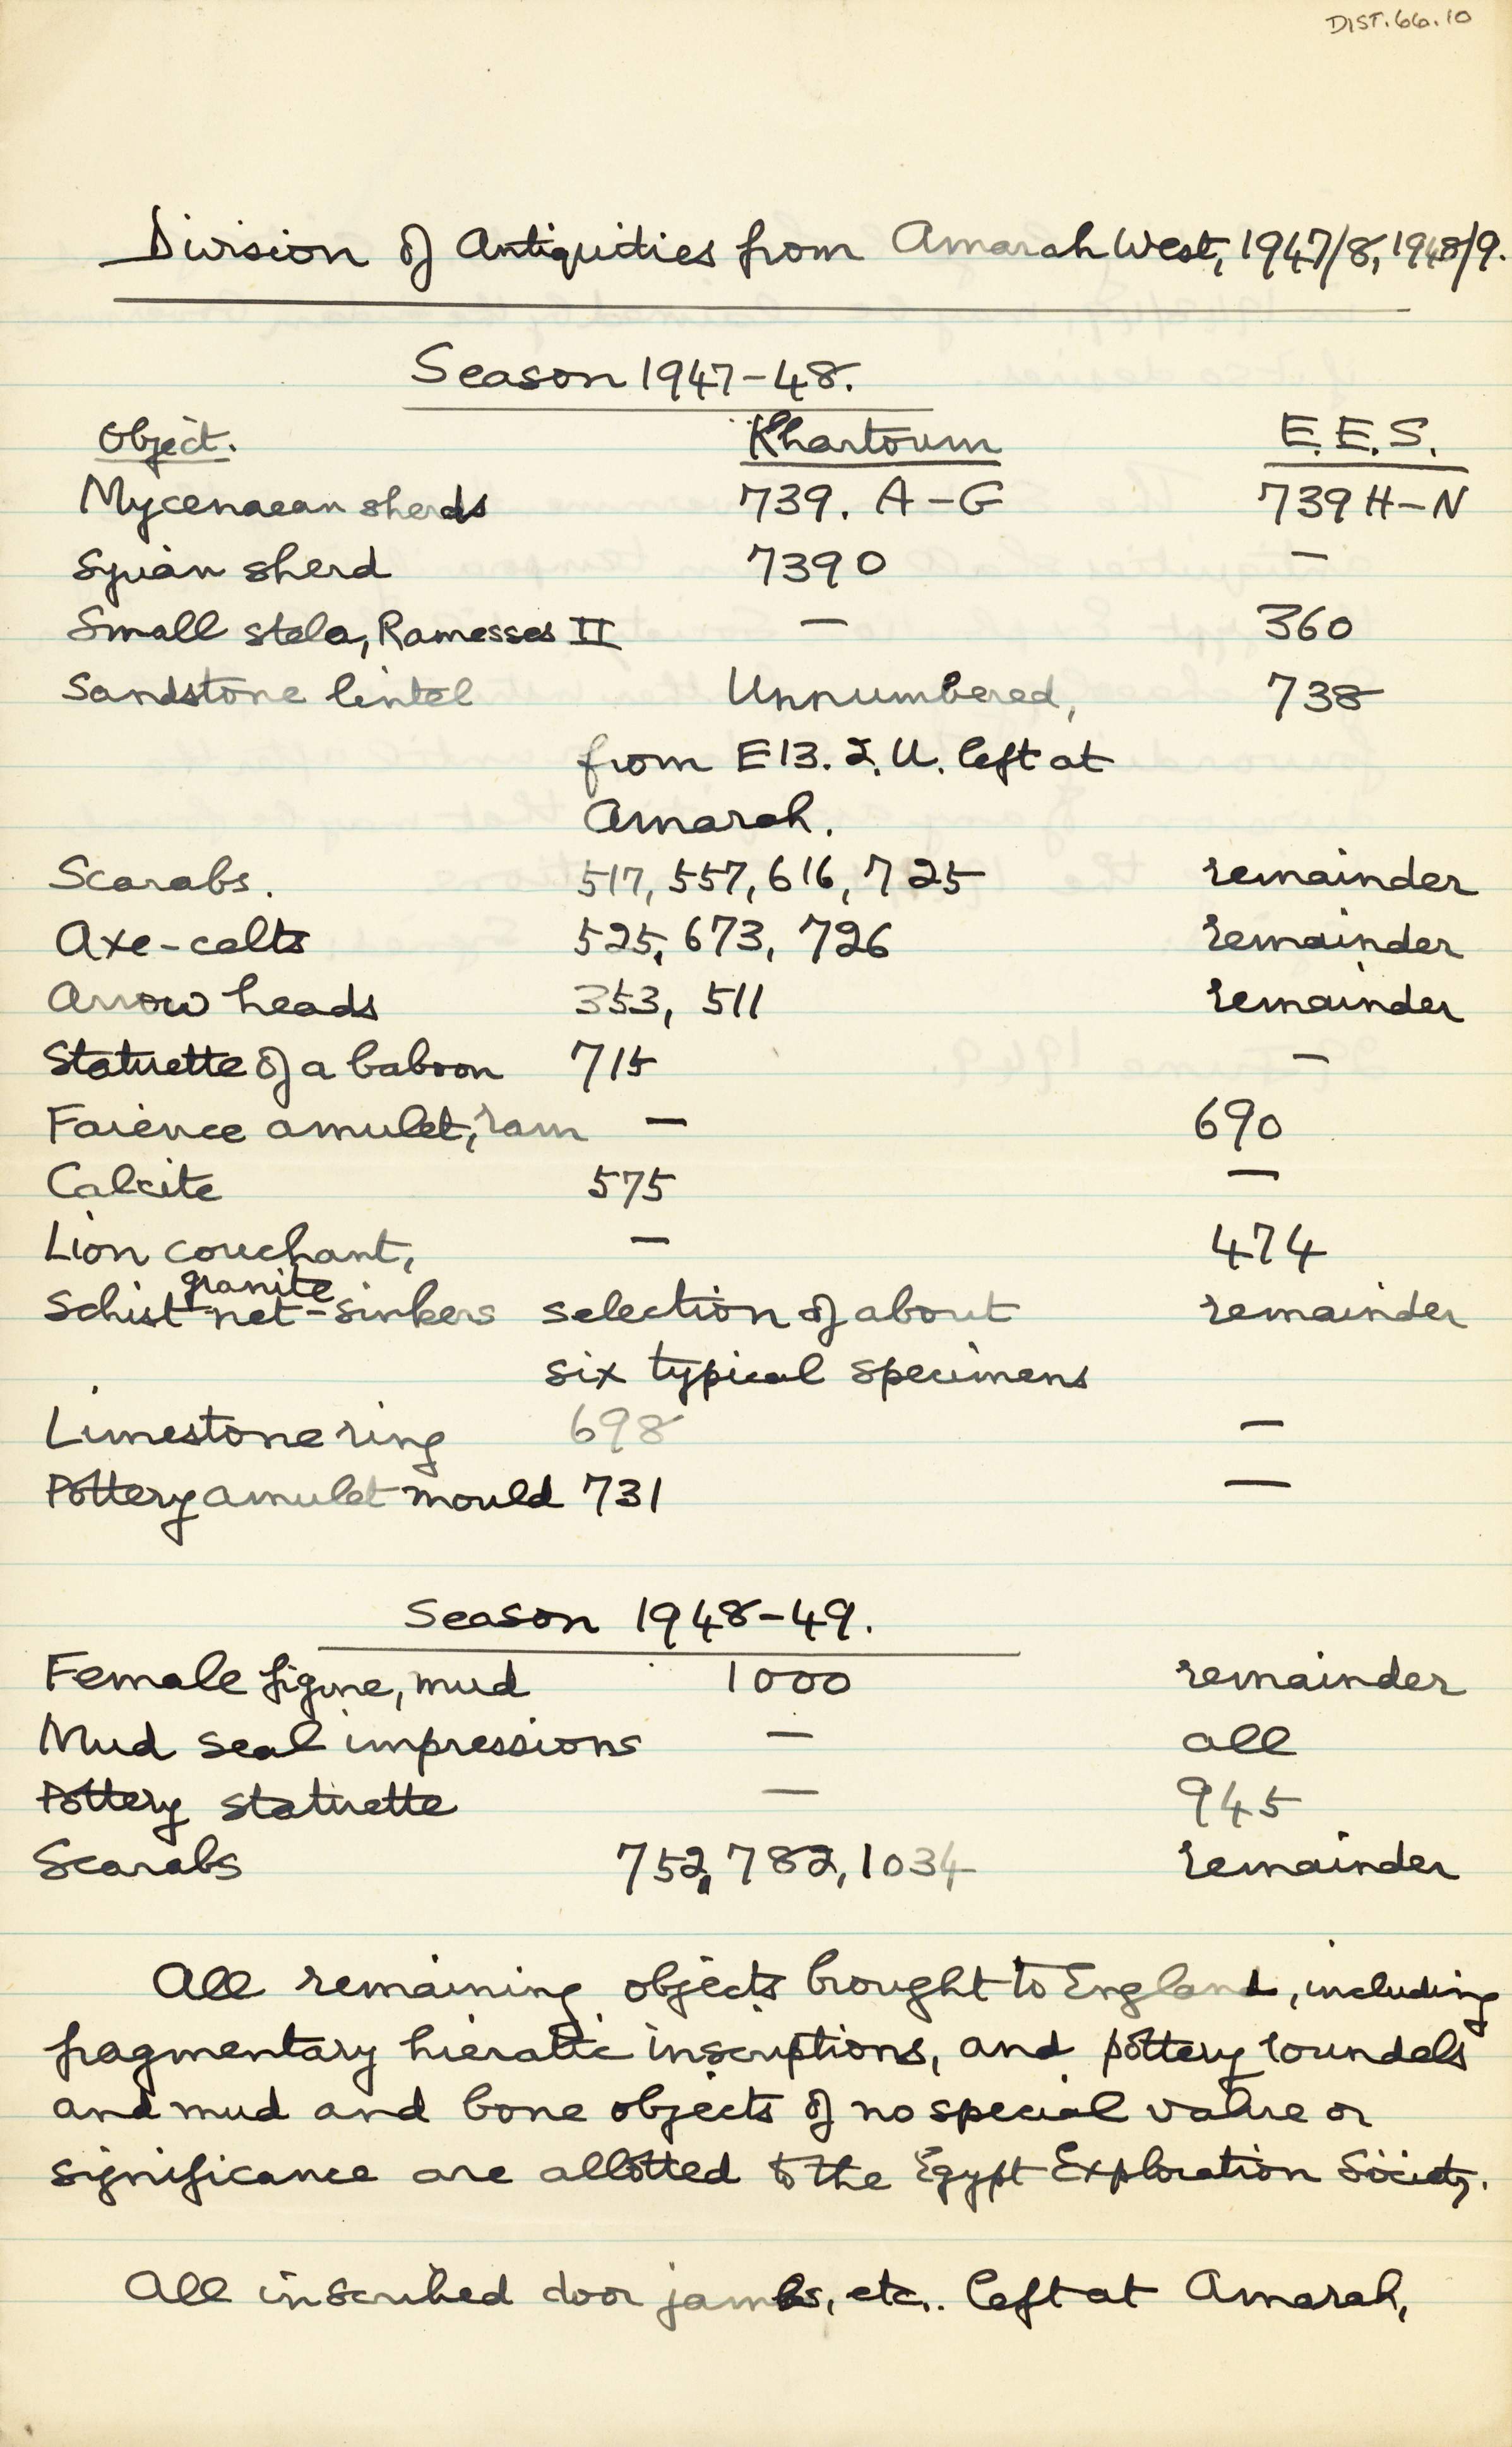 DIST.66.10
Division of Antiquities from Amarah West, 1947/8, 1948/9.
Season 1947-48.
Object. Khartoum E.E.S.
Mycenaean sherds 739. A-G 739 H-N
Syrian sherd 739 O —
Small stela, Ramesses II — 360
Sandstone lintel Unnumbered, 738
from E13. 2. U. left at
Amarah.
Scarabs. 517, 557, 616, 725 remainder
Axe-celts 525, 673, 726 remainder
Arrow heads 353, 511 remainder
Statuette of a baboon 715 —
Faience amulet, ram — 690
Calcite 575 —
Lion couchant, — 474
granite
Schist net-sinkers selection of about remainder
six typical specimens
Limestone ring 698 —
Pottery amulet mould 731 —
Season 1948-49.
Female figure, mud 1000 remainder
Mud seal impressions — all
Pottery statuette — 945
Scarabs 752, 782, 1034 remainder
All remaining objects brought to England, including
fragmentary hieratic inscriptions, and pottery roundels
and mud and bone objects of no special value or
significance are allotted to the Egypt Exploration Society.
All inscribed door jambs, etc.. left at Amarah,